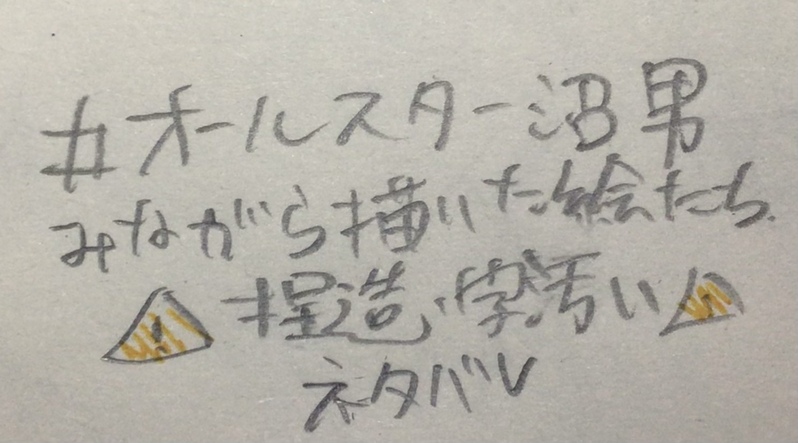 #オールスター沼男
みながら描いた絵たち
⚠捏造、字汚い⚠
ネタバレ